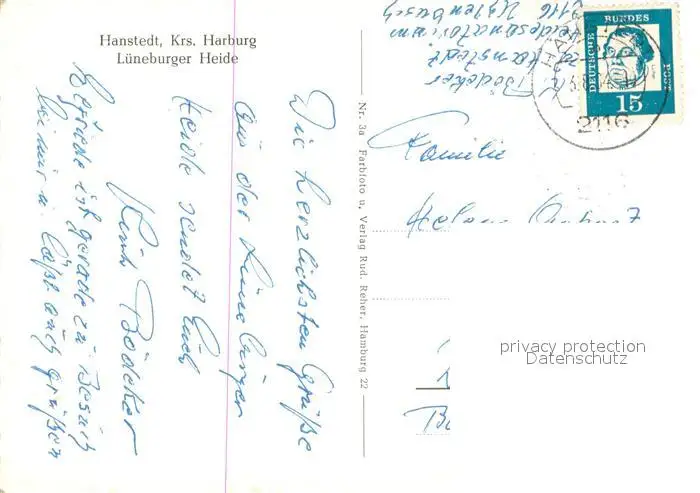 Hanstedt, Krs. Harburg
Lüneburger Heide
Die herzlichsten Grüße
aus der Lüneburger
Heide sendet Euch
Bödeker
ist gerade zu Besuch
bei mir u. läßt auch grüßen
Nr. 3a Farbfoto u. Verlag Rud. Reher, Hamburg 22
Bödeker
Hanstedt
2116
DEUTSCHE
BUNDES
POST
15
2116
Familie
privacy protection
Datenschutz